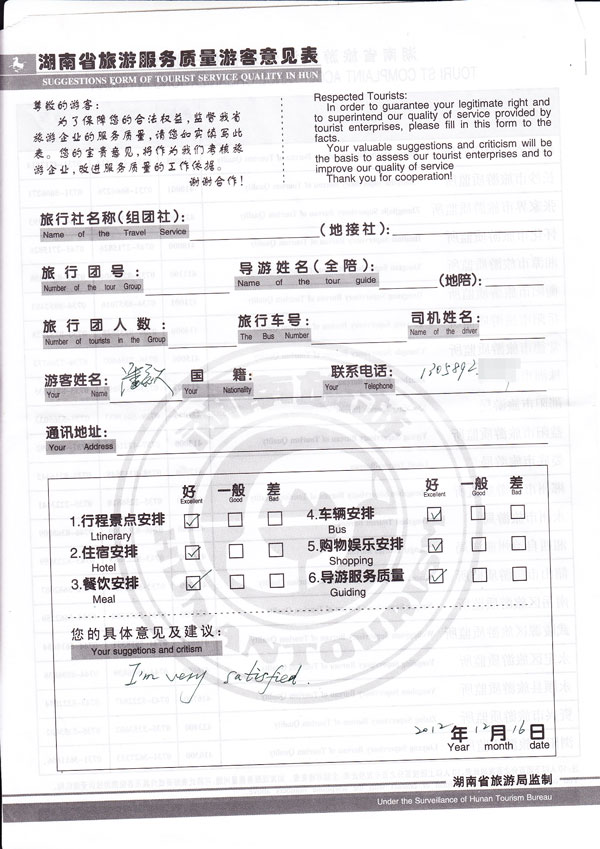 湖南省旅游服务质量游客意见表
SUGGESTIONS FORM OF TOURIST SERVICE QUALITY IN HUN
尊敬的游客:
为了保障您的合法权益,监督我省
旅游企业的服务质量,请您如实填写此
表。您的宝贵意见,将作为我们考核旅
游企业,改进服务质量的工作依据。
谢谢合作!
Respected Tourists:
In order to guarantee your legitimate right and
to superintend our quality of service provided by
tourist enterprises, please fill in this form to the
facts.
Your valuable suggestions and criticism will be
the basis to assess our tourist enterprises and to
improve our quality of service
Thank you for cooperation!
旅行社名称(组团社): (地接社):
Name of the Travel Service
旅行团号: 导游姓名(全陪): (地陪):
Number of the tour Group Name of the tour guide
旅行团人数: 旅行车号: 司机姓名:
Number of tourists in the Group The Bus Number Name of the driver
游客姓名: 国籍: 联系电话: 1305892
Your Name Your Nationality Your Telephone
通讯地址:
Your Address
好 一般 差 好 一般 差
Excellent Good Bad Excellent Good Bad
1.行程景点安排 4.车辆安排
Ltinerary Bus
2.住宿安排 5.购物娱乐安排
Hotel Shopping
3.餐饮安排 6.导游服务质量
Meal Guiding
您的具体意见及建议:
Your suggetions and critism
I'm very satisfied.
2012年12月16日
Year month date
湖南省旅游局监制
Under the Surveillance of Hunan Tourism Bureau
HUNANTOURISM